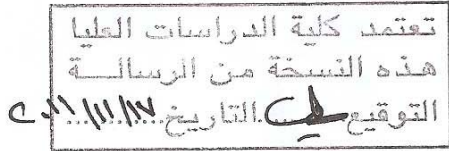 تعتمد كلية الدراسات العليا
هذه النسخة من الرسالــة
التوقيع..........التاريخ ٢٠١١/١١/١٧